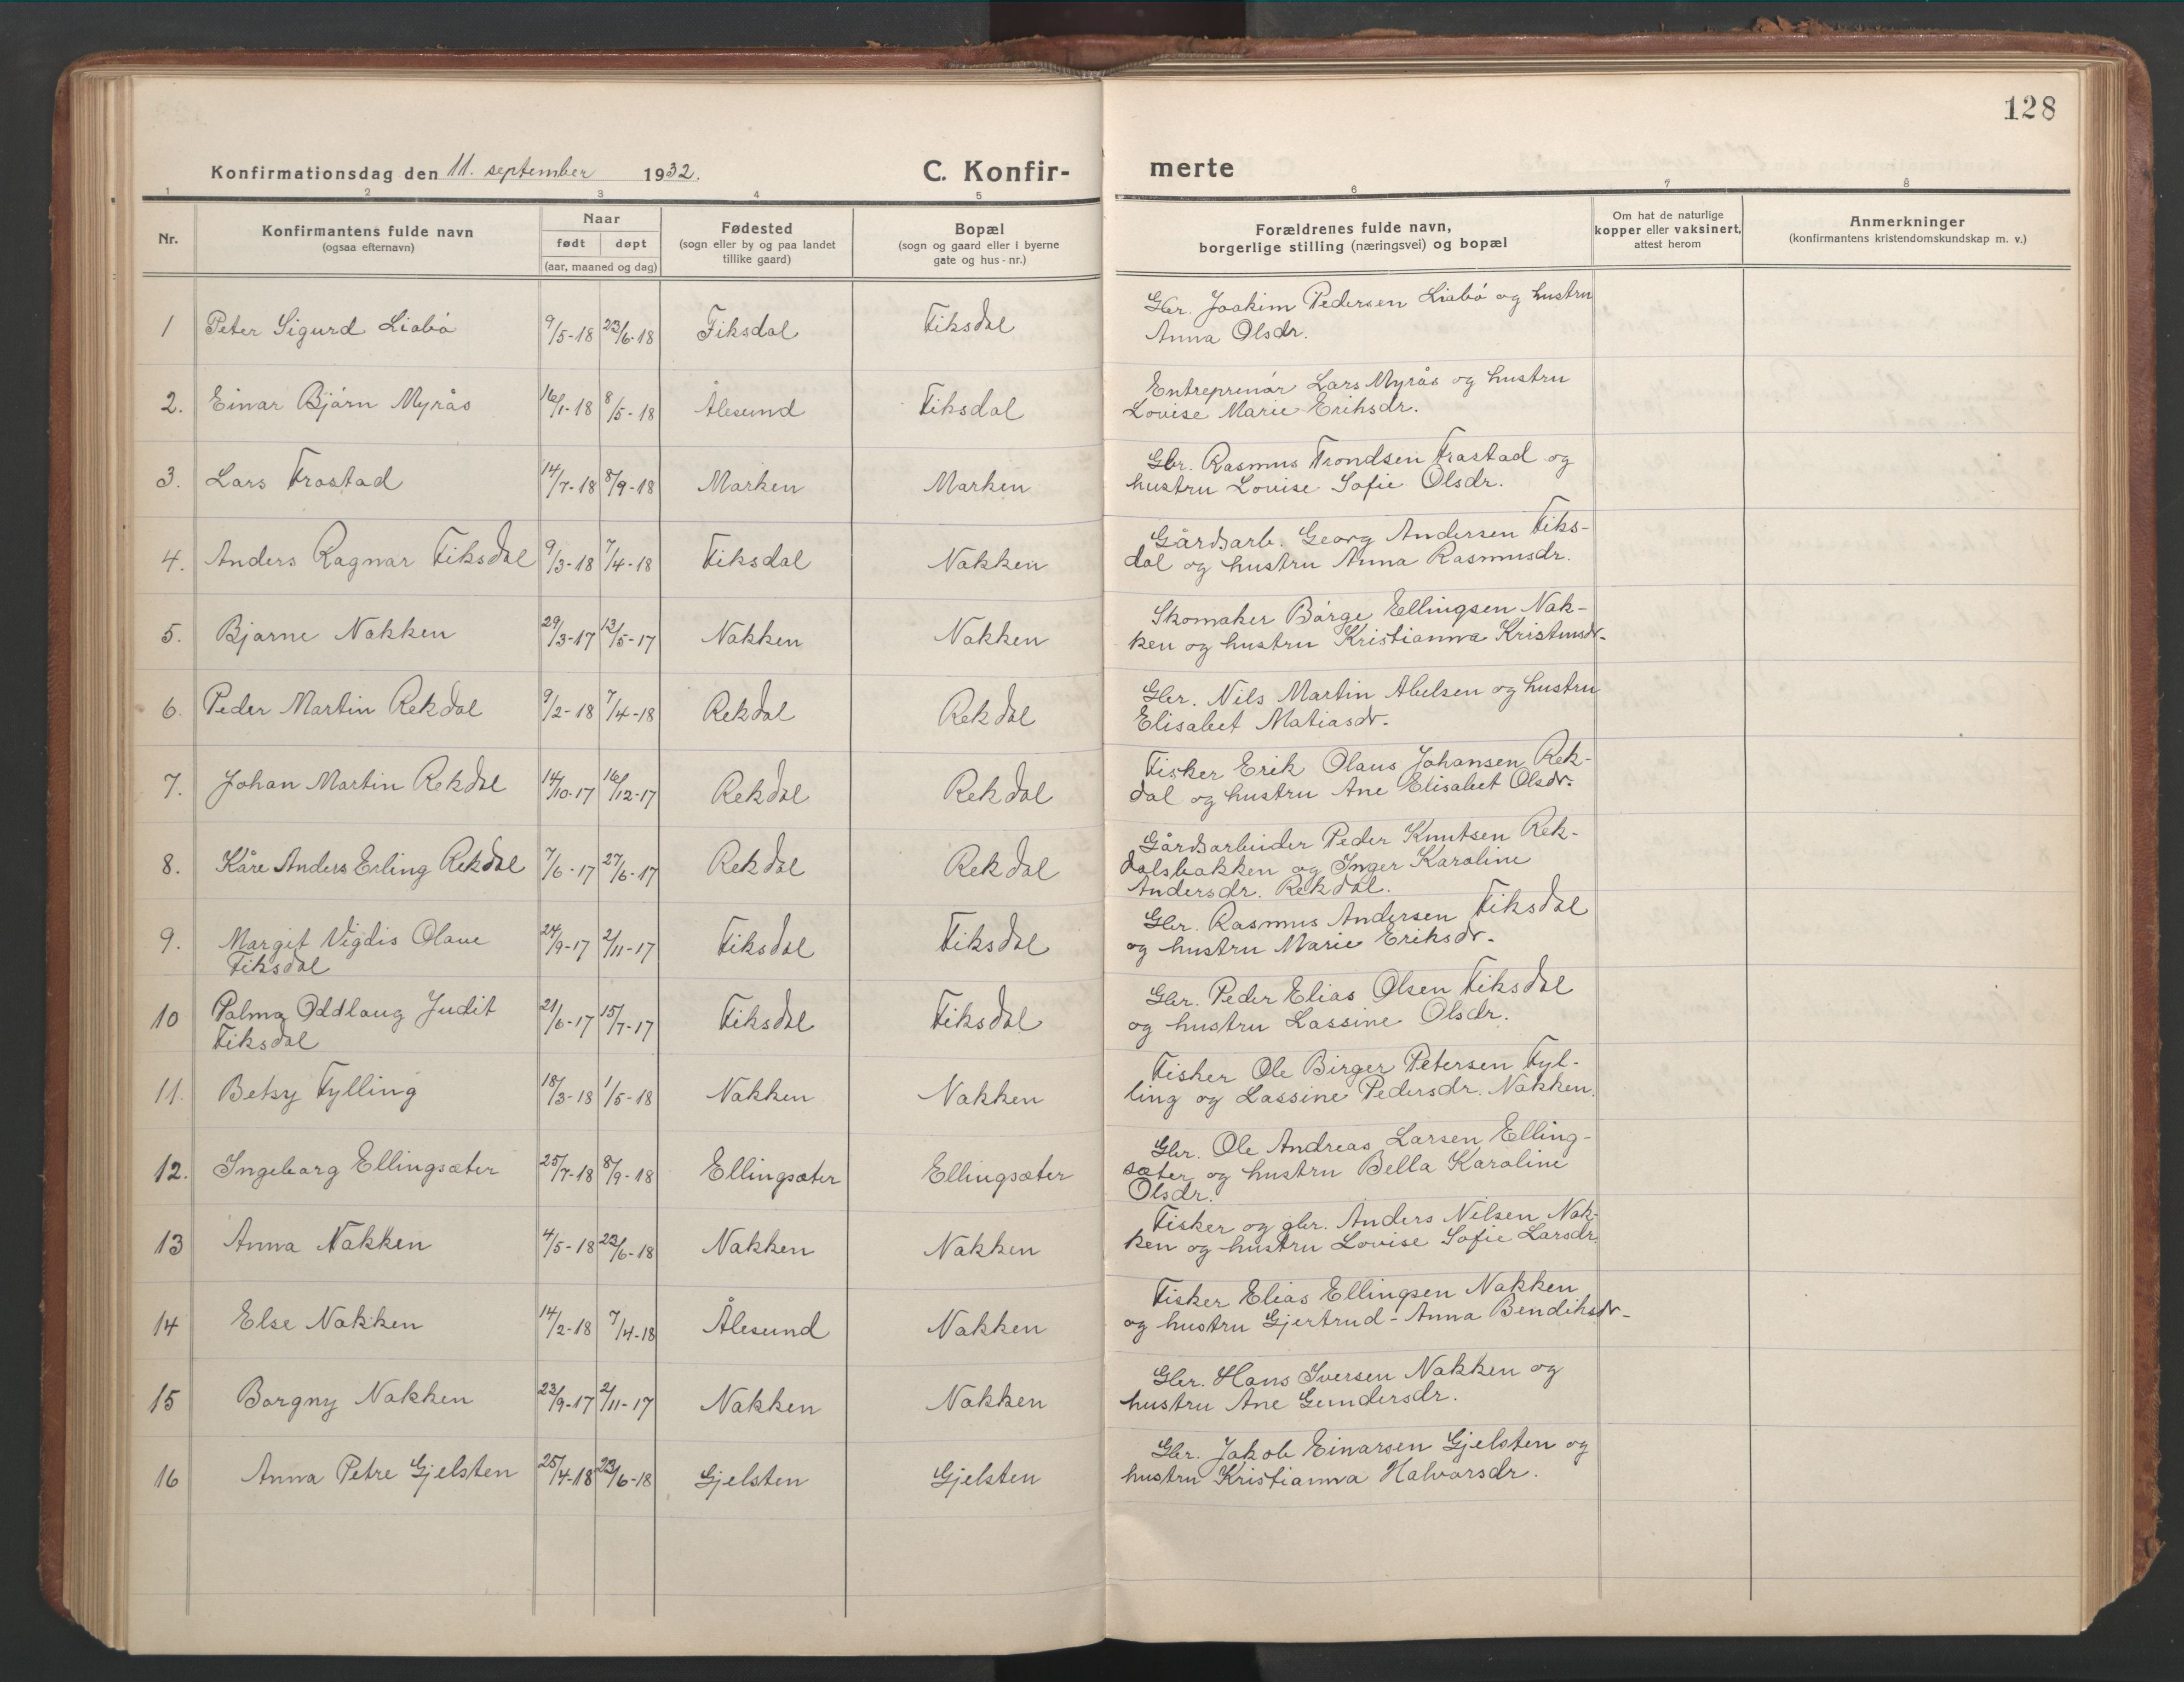 128
Konfirmationsdag den 11. september 1932. C. Konfir- merte
1 2 3 4 5 6 7 8
Nr. Konfirmantens fulde navn (ogsaa efternavn) Naar født døpt (aar, maaned og dag) Fødested (sogn eller by og paa landet tillike gaard) Bopæl (sogn og gaard eller i byerne gate og hus-nr.) Forældrenes fulde navn, borgerlige stilling (næringsvei) og bopæl Om hat de naturlige kopper eller vaksinert, attest herom Anmerkninger (konfirmantens kristendomskundskap m. v.)
1 Peter Sigurd Liabö 9/5-18 23/6-18 Fiksdal Fiksdal Gbr. Joakim Pedersen Liabö og hustru
Anna Olsdr.
2. Einar Bjørn Myrås 16/1-18 8/5-18 Ålesund Fiksdal Entreprenør Lars Myrås og hustru
Lovise Marie Eriksdr.
3. Lars Frostad 14/7-18 8/9-18 Marken Marken Gbr. Rasmus Trondsen Frostad og
hustru Lovise Sofie Olsdr.
4. Anders Ragnar Fiksdal 9/3-18 7/4-18 Fiksdal Nakken Gårdsarb. Georg Andersen Fiks-
dal og hustru Anna Rasmusdr.
5. Bjarne Nakken 29/3-17 13/5-17 Nakken Nakken Skomaker Börge Ellingsen Nak-
ken og hustru Kristianna Kristensdr.
6. Peder Martin Rekdal 9/2-18 7/4-18 Rekdal Rekdal Gbr. Nils Martin Abelsen og hustru
Elisabet Matiasdr.
7. Johan Martin Rekdal 14/10-17 16/12-17 Rekdal Rekdal Fisker Erik Olaus Johansen Rek-
dal og hustru Ane Elisabet Olsdr.
8. Kåre Anders Erling Rekdal 7/6-17 27/6-17 Rekdal Rekdal Gårdsarbeider Peder Knutsen Rek-
dalsbakken og Inger Karoline
Andersdr. Rekdal.
9. Margit Vigdis Olave 24/9-17 2/11-17 Fiksdal Fiksdal Gbr. Rasmus Andersen Fiksdal
Fiksdal og hustru Marie Eriksdr.
10 Palma Oddlaug Judit 21/6-17 15/7-17 Fiksdal Fiksdal Gbr. Peder Elias Olsen Fiksdal
Fiksdal og hustru Lassine Olsdr.
11. Betsy Fylling 18/3-18 1/5-18 Nakken Nakken Fisker Ole Birger Petersen Fyl-
ling og Lassine Pedersdr. Nakken.
12. Ingeborg Ellingsæter 25/7-18 8/9-18 Ellingsæter Ellingsæter Gbr. Ole Andreas Larsen Elling-
sæter og hustru Bella Karoline
Olsdr.
13 Anna Nakken 4/5-18 23/6-18 Nakken Nakken Fisker og gbr. Anders Nilsen Nak-
ken og hustru Lovise Sofie Larsdr.
14 Else Nakken 14/2-18 7/4-18 Ålesund Nakken Fisker Elias Ellingsen Nakken
og hustru Gjertrud-Anna Bendiksdr.
15 Borgny Nakken 23/9-17 2/11-17 Nakken Nakken Gbr. Hans Iversen Nakken og
hustru Ane Gundersdr.
16 Anna Petre Gjelsten 25/4-18 23/6-18 Gjelsten Gjelsten Gbr. Jakob Einarsen Gjelsten og
hustru Kristianna Halvorsdr.